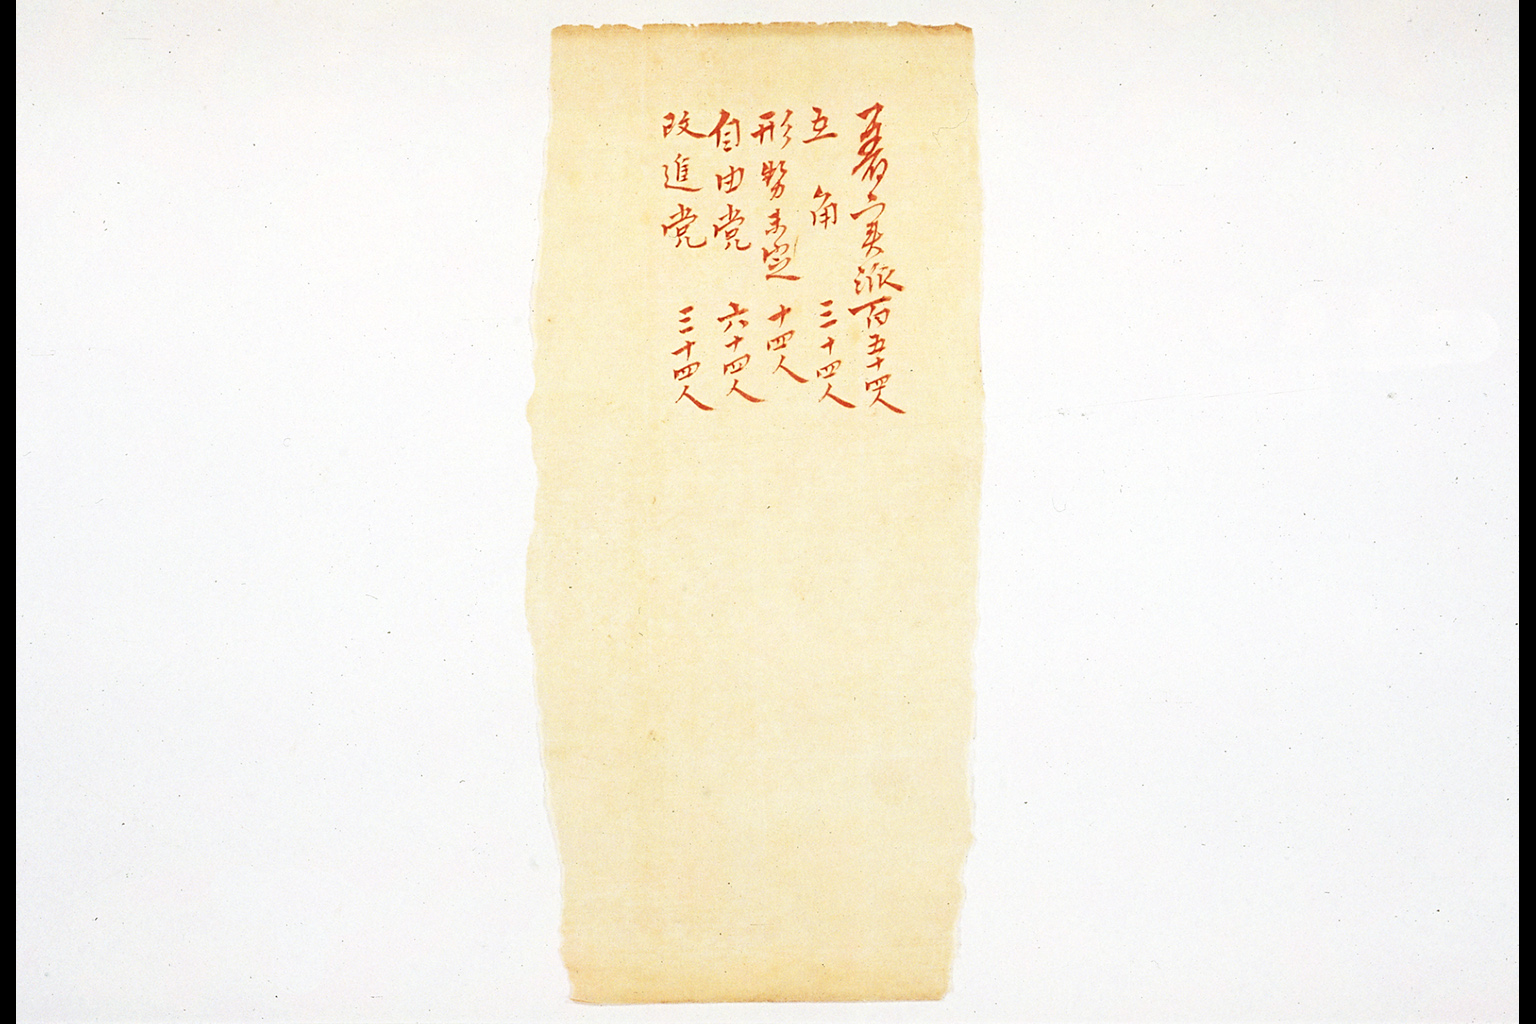 着実派百五十四人
互角 三十四人
形勢未定 十四人
自由党 六十四人
改進党 三十四人